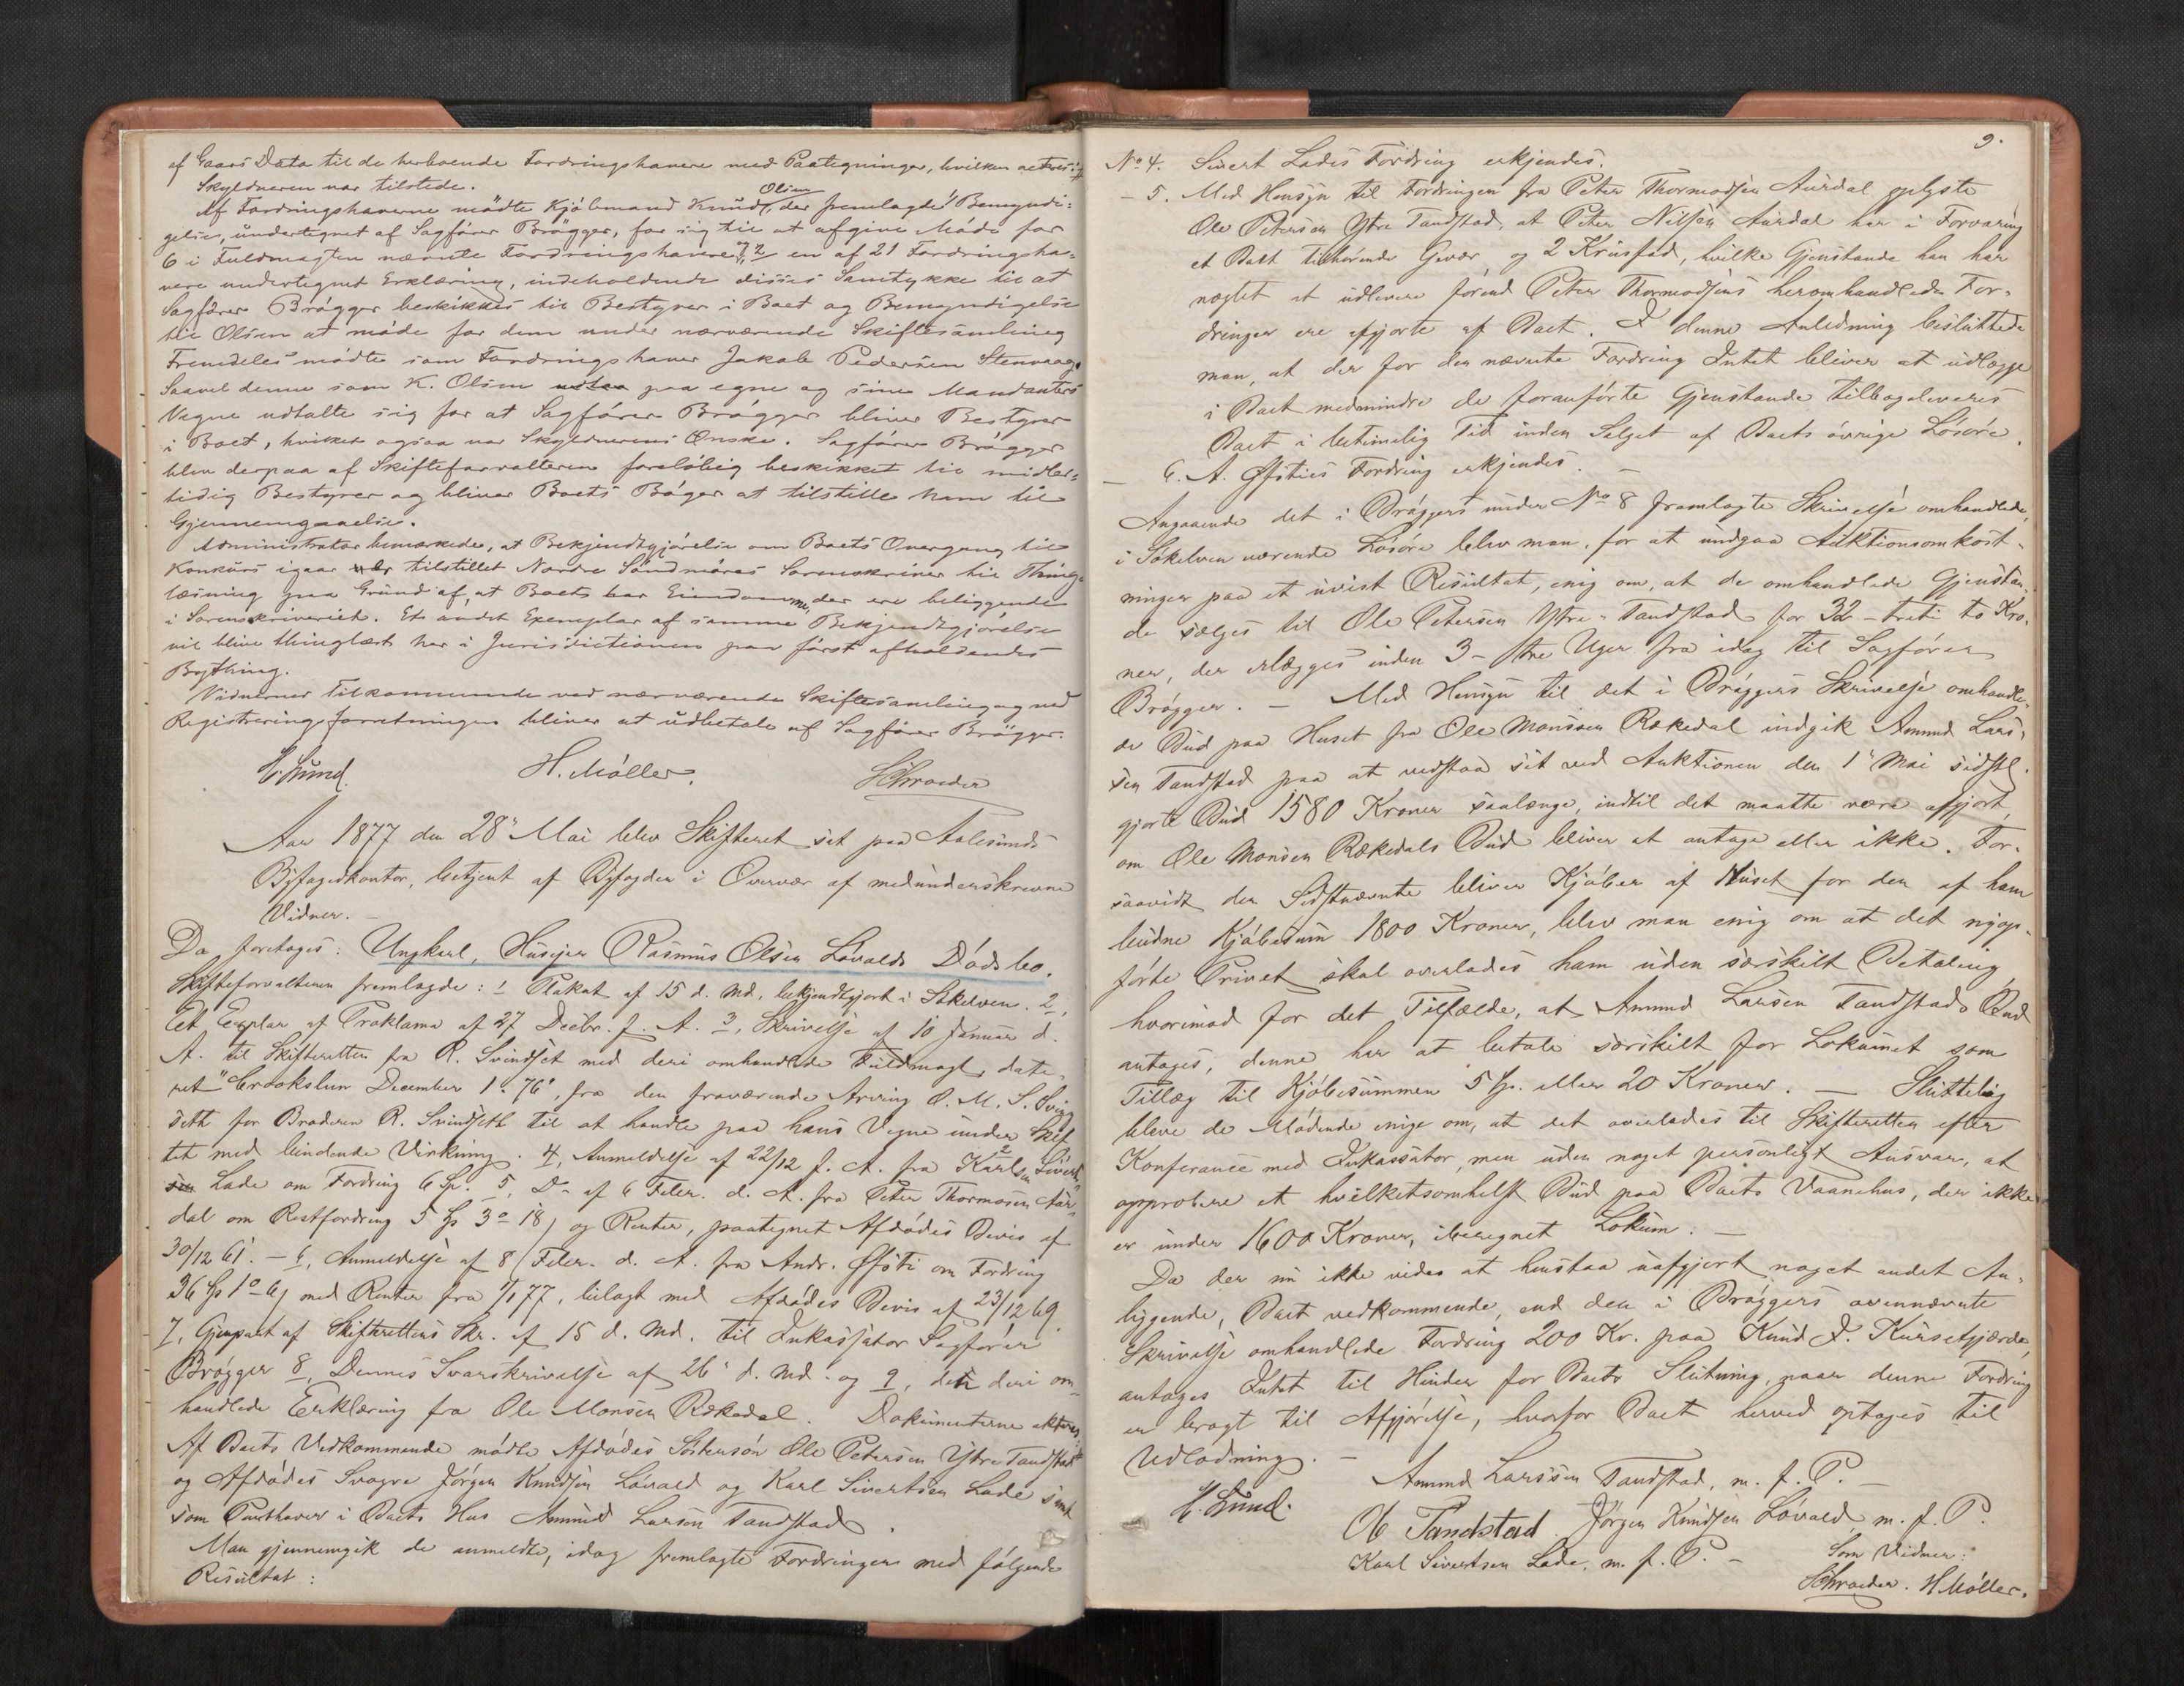 af Gaars Data til de herboende Fordringshavere med Paategninger, hvilken acteres.
Skyldneren var tilstede.
Af Fordringshaverne mødte Kjøbmand Knud Olsen, der fremlagde 1 Bemyndi-
gelse, undertegnet af Sagfører Brøgger, for sig til at afgive Møde for
6 i Fuldmagten nævnte Fordringshavere, 2 en af 21 Fordringsha-
vere undertegnet Erklæring, indeholdende disses Samtykke til at
Sagfører Brøgger beskikkes til Bestyrer i Boet og Bemyndigelse
til Olsen at møde for dem under nærværende Skiftesamling
Fremdeles mødte som Fordringshaver Jakob Pedersen Stenvaag.
Saavel denne som K. Olsen paa egne og sine Mandanters
Vegne udtalte sig for at Sagfører Brøgger bliver Bestyrer
i Boet, hvilket ogsaa var Skyldnerens Ønske. Sagfører Brøgger
blev derpaa af Skifteforvalteren foreløbig beskikket til midler-
tidig Bestyrer og bliver Boets Bøger at tilstille ham til
Gjennemgaaelse.
Administrator bemærkede, at Bekjendtgjørelse om Boets Overgang til
Konkurs igaar er tilstillet Nordre Søndmøres Sorenskriver til Thing-
læsning paa Grund af, at Boets har Eiendomme, der ere beliggende
i Sorenskriveriet. Et andet Exemplar af samme Bekjendtgjørelse
vil blive thinglæst her i Jurisdictionen paa først afholdendes
Bything.
Vidnernes Tilkommende ved nærværende Skiftesamling og ved
Registreringsforretningen bliver at udbetale af Sagfører Brøgger.
E. Lund. H. Møller. Schroeder
Aar 1877 den 28de Mai blev Skifteret sat paa Aalesunds
Byfogedkontor, betjent af Byfogden i Overvær af medunderskrevne
Vidner. –
Da foretoges: Ungkarl, Huseier Rasmus Olsen Løvolds Dødsbo.
Skifteforvalteren fremlagde: 1 Plakat af 15 d. Md. bekjendtgjort i Søkelven. 2,
Et Explar af Proklama af 27 Decbr. f. A. 3, Skrivelse af 10 Januar d.
A. til Skifteretten fra R. Svindset med deri omhandlede Fuldmagt, date-
ret "Crookslun December 1. 76", fra den fraværende Arving O. M. S. Svin
seth for Broderen R. Svindseth til at handle paa hans Vegne under Skif
tet med bindende Virkning. 4, Anmeldelse af 22/12 f. A. fra Karl Sivert
sen Lade om Fordring 6 Sp. 5, Do af 6 Febr. d. A. fra Peter Thormosen Aur
dal om Restfordring 5 Sp 3 o 18 / og Renter, paategnet Afdødes Bevis af
30/12 61. – 6, Anmeldelse af 8 / Febr. d. A. fra Andr. Øfsti om Fordring
36 Sp 1 o 6 / med Renter fra 1/1 77, bilagt med Afdødes Bevis af 23/12 69.
7, Gjenpart af Skifterettens Skr. af 15 d. Md. til Inkassator Sagfører
Brøgger 8, Dennes Svarskrivelse af 26 d. Md. og 9, den deri om-
handlede Erklæring fra Ole Monsen Rekedal. Dokumenterne akteres.
Af Boets Vedkommende mødte Afdødes Søstersøn Ole Petersen Ytre Tandstad
og Afdødes Svogre Jørgen Knudsen Løvold og Karl Sivertsen Lade samt
som Panthaver i Boets Hus Amund Larsen Tandstad.
Man gjennemgik de anmeldte, idag fremlagte Fordringer med følgende
Resultat:
9.
No 4. Sivert Lades Fordring erkjendes.
– 5. Med Hensyn til Fordringen fra Peter Thormodsen Aurdal oplyste
Ole Petersen Ytre Tandstad, at Peter Nilsen Aurdal har i Forvaring
et Boet tilhørende Gevær og 2 Krusfad, hvilke Gjenstande han har
nægtet at udlevere førend Peter Thormodsens heromhandlede For-
dringer ere afgjorte af Boet. I denne Anledning besluttede
man, at der for den nævnte Fordring Intet bliver at udlægge
i Boet medmindre de foranførte Gjenstande tilbageleveres
Boet i betimelig Tid inden Salget af Boets øvrige Løsøre.
– 6. A. Øfsties Fordring erkjendes. –
Angaaende det i Brøggers under No 8 fremlagte Skrivelse omhandlede,
i Søkelven værende Løsøre blev man, for at undgaa Auktionsomkost-
ninger paa et uvist Resultat, enig om, at de omhandlede Gjenstan-
de sælges til Ole Petersen Ytre-Tandstad for 32 – treti to Kro-
ner, der erlægges inden 3 – tre Uger fra idag til Sagfører
Brøgger. – Med Hensyn til det i Brøggers Skrivelse omhandle-
de Bud paa Huset fra Ole Monsen Rekedal indgik Amund Lars-
sen Tandstad paa at vedstaa sit ved Auktionen den 1 Mai sidstl.
gjorte Bud 1580 Kroner saalænge, indtil det maatte være afgjort,
om Ole Monsen Rekedals Bud bliver at antage eller ikke. For-
saavidt den Sidstnævnte bliver Kjøber af Huset for den af ham
budne Kjøbesum 1800 Kroner, blev man enig om at det nyop-
førte Privet skal overlades ham uden særskilt Betaling
hvorimod for det Tilfælde, at Amund Larsen Tandstads Bud
antages, denne har at betale særskilt for Lokumet som
Tillæg til Kjøbesummen 5 Sp. eller 20 Kroner. – Sluttelig
bleve de Mødende enige om, at det overlades til Skifteretten efter
Konferance med Inkassator, men uden noget personligt Ansvar, at
approbere et hvilketsomhelst Bud paa Boets Vaanehus, der ikke
er under 1600 Kroner, iberegnet Lokum. –
Da der nu ikke vides at henstaa uafgjort noget andet An-
liggende, Boet vedkommende, end den i Brøggers ovennævnte
Skrivelse omhandlede Fordring 200 Kr. paa Knud I. Kursetgjærde,
antages Intet til Hinder for Boets Slutning, naar denne Fordring
er bragt til Afgjørelse, hvorfor Boet herved optages til
Udlodning. –
Amund Larssen Tandstad, m. f. P. –
E. Lund.
Ole Tandstad Jørgen Knudsen Løvold m. f. P.
Karl Sivertsen Lade, m. f. P. –
Som Vidner:
Schroeder. H Møller.